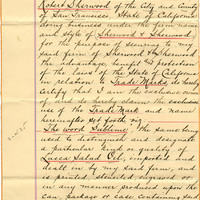 Robert Sherwood of the City and County
of San Francisco, State of California
doing business under the firm name
and style of Sherwood & Sherwood,
for the purpose of securing to my
said firm of Sherwood & Sherwood
the advantage, benefit & protection
of the laws of the State of California
in relation to Trade Marks, do hereby
certify that I am the exclusive
owner of and do hereby claim the exclusive
use of the Trade Mark and name
hereinafter set forth viz
The word Sublime. The same being
used to distinguish and designate
a particular kind or quality of
Lucca Salad Oil, imported and
dealt in by my said firm, and
as printed, stenciled, engraved or
in any manner produced upon the
can package or case containing said